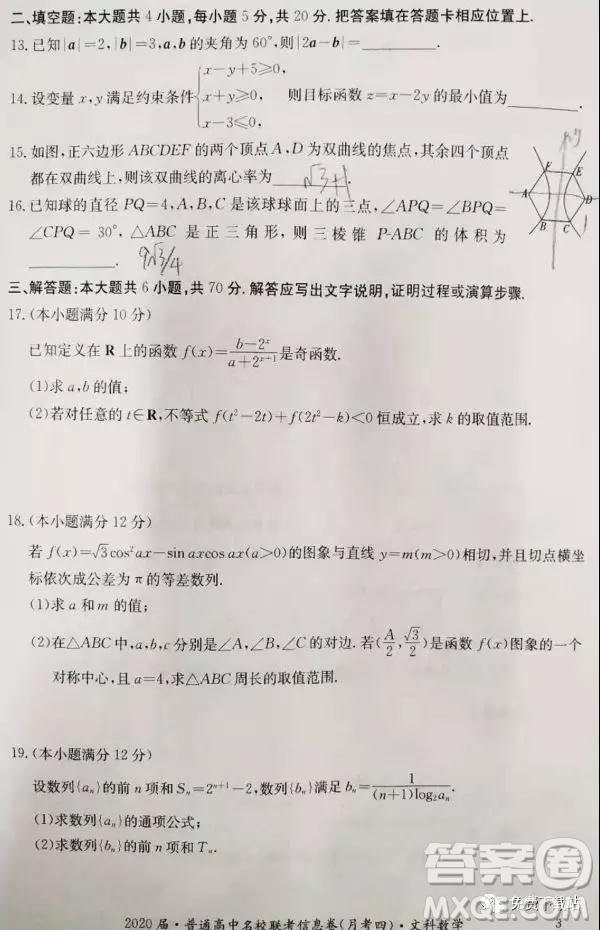 二、填空题:本大题共 4 小题,每小题 5 分,共 20 分. 把答案填在答题卡相应位置上.
13. 已知|a|=2,|b|=3,a,b 的夹角为 60°,则|2a-b|=________.
14. 设变量 x,y 满足约束条件{x-y+5≥0, x+y≥0, x-3≤0, 则目标函数 z=x-2y 的最小值为________.
15. 如图,正六边形 ABCDEF 的两个顶点 A,D 为双曲线的焦点,其余四个顶点
都在双曲线上,则该双曲线的离心率为 √3+1.
F E A D B C
y
16. 已知球的直径 PQ=4,A,B,C 是该球球面上的三点,∠APQ=∠BPQ=
∠CPQ = 30°, △ABC 是正三角形, 则三棱锥 P-ABC 的体积为
________. 9√3/4
三、解答题:本大题共 6 小题,共 70 分. 解答应写出文字说明,证明过程或演算步骤.
17. (本小题满分 10 分)
已知定义在 R 上的函数 f(x)=(b-2^x)/(a+2^(x+1))是奇函数.
(1)求 a,b 的值;
(2)若对任意的 t∈R,不等式 f(t²-2t)+f(2t²-k)<0 恒成立,求 k 的取值范围.
18. (本小题满分 12 分)
若 f(x)=√3cos²ax-sin axcos ax(a>0)的图象与直线 y=m(m>0)相切,并且切点横坐
标依次成公差为 π 的等差数列.
(1)求 a 和 m 的值;
(2)在△ABC 中,a,b,c 分别是∠A,∠B,∠C 的对边. 若(A/2,√3/2)是函数 f(x)图象的一个
对称中心,且 a=4,求△ABC 周长的取值范围.
19. (本小题满分 12 分)
设数列{aₙ}的前 n 项和 Sₙ=2^(n+1)-2,数列{bₙ}满足 bₙ=1/((n+1)log₂aₙ).
(1)求数列{aₙ}的通项公式;
(2)求数列{bₙ}的前 n 项和 Tₙ.
答案卷
免费下载站
2020 届·普通高中名校联考信息卷(月考四)·文科数学 3